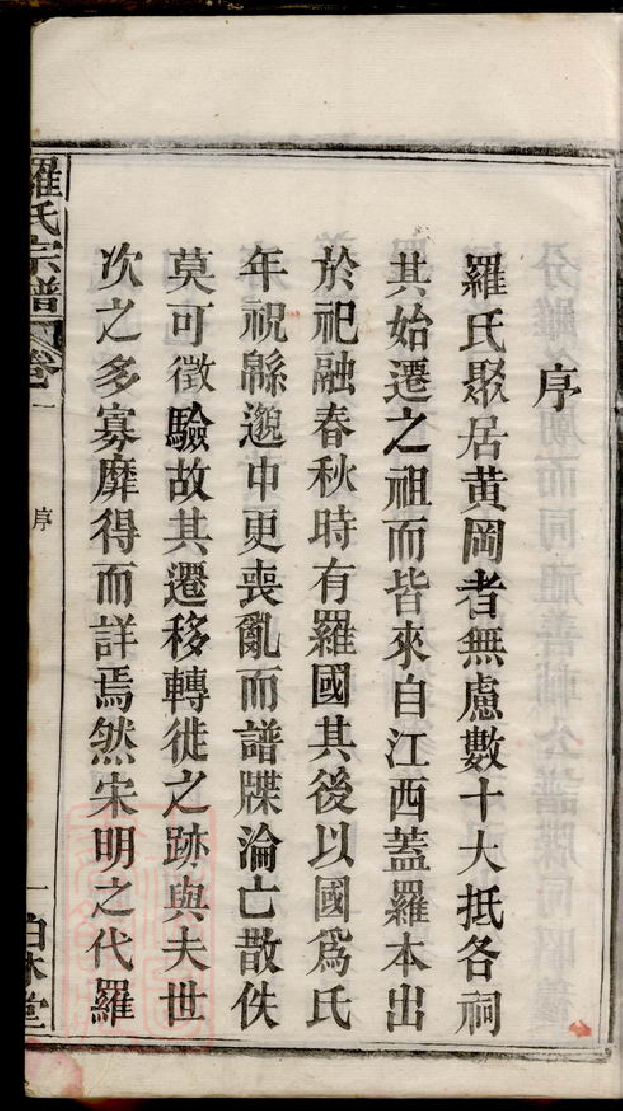 序
羅氏聚居黄岡者無慮數十大抵各祠
其始遷之祖而皆來自江西蓋羅本出
於祀融春秋時有羅國其後以國爲氏
年祝緜邈中更喪亂而譜牒淪亡散佚
莫可徵驗故其遷移轉徙之跡與夫世
次之多寡靡得而詳焉然宋明之代羅
羅氏宗譜 卷一 序 一 柏林堂